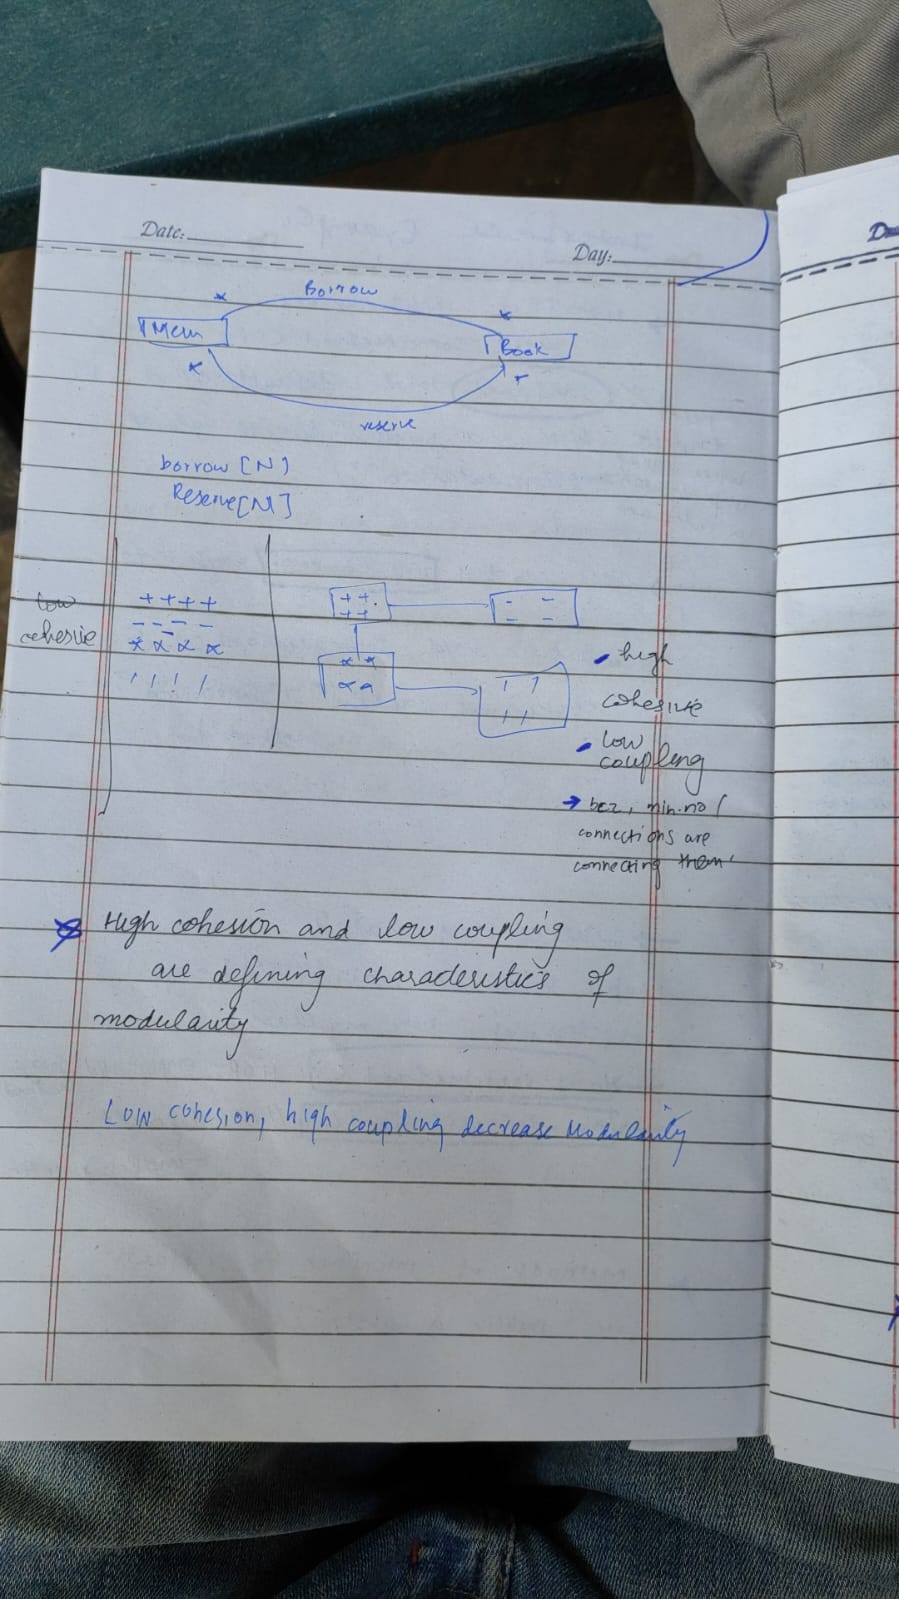 Date:
Day:
Borrow
* *
Mem
Book
* *
reserve
borrow [N]
Reserve[M]
low
cohesive
+ + + +
- - - -
* α α α
/ / / /
+ +
+ +
- -
- -
* *
α α
/ /
/ /
• high
cohesive
• low
coupling
→ bcz, min.no/
connections are
connecting them
High cohesion and low coupling
are defining characteristics of
modularity
Low cohesion, high coupling decrease Modularity